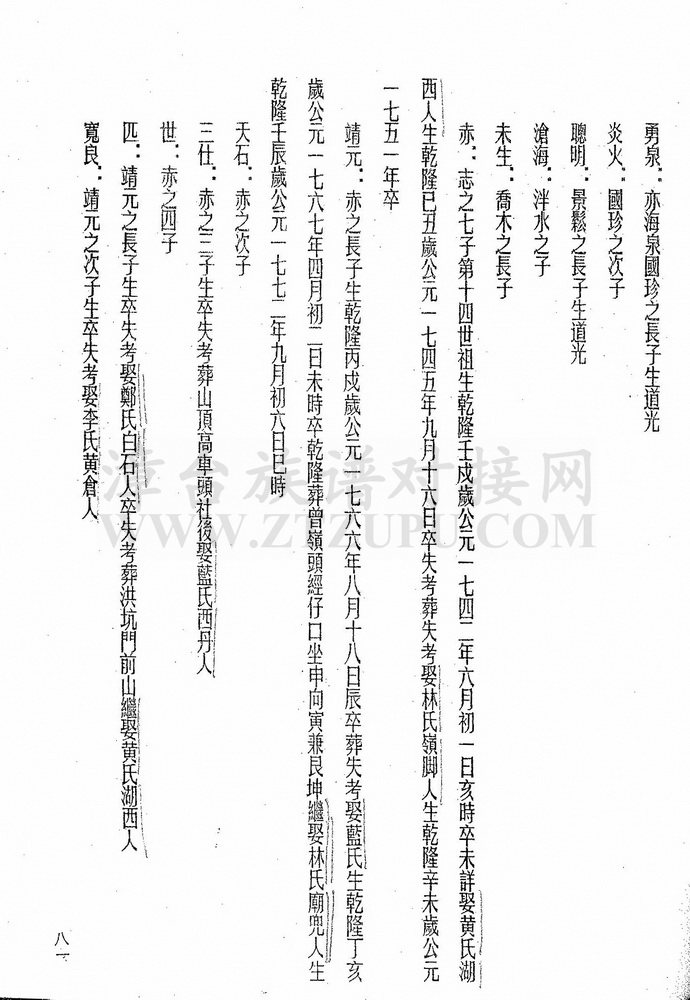 勇泉：亦海泉國珍之長子生道光
炎火：國珍之次子
聰明：景鬆之長子生道光
滄海：泮水之子
未生：喬木之長子
赤：志之七子第十四世祖生乾隆壬戍歲公元一七四二年六月初一日亥時卒未詳娶黃氏湖
西人生乾隆已丑歲公元一七四五年九月十六日卒失考葬失考娶林氏嶺脚人生乾隆辛未歲公元
一七五一年卒
靖元：赤之長子生乾隆丙戍歲公元一七六六年八月十八日辰卒葬失考娶藍氏生乾隆丁亥
歲公元一七六七年四月初二日未時卒乾隆葬曾嶺頭經仔口坐申向寅兼艮坤繼娶林氏廟兜人生
乾隆壬辰歲公元一七七二年九月初六日巳時
天石：赤之次子
三仕：赤之三子生卒失考葬山頂高車頭社後娶藍氏西丹人
世：赤之四子
匹：靖元之長子生卒失考娶鄭氏白石人卒失考葬洪坑門前山繼娶黃氏湖西人
寬良：靖元之次子生卒失考娶李氏黃倉人
八一
漳台族谱对接网
WWW.ZTZUPU.COM